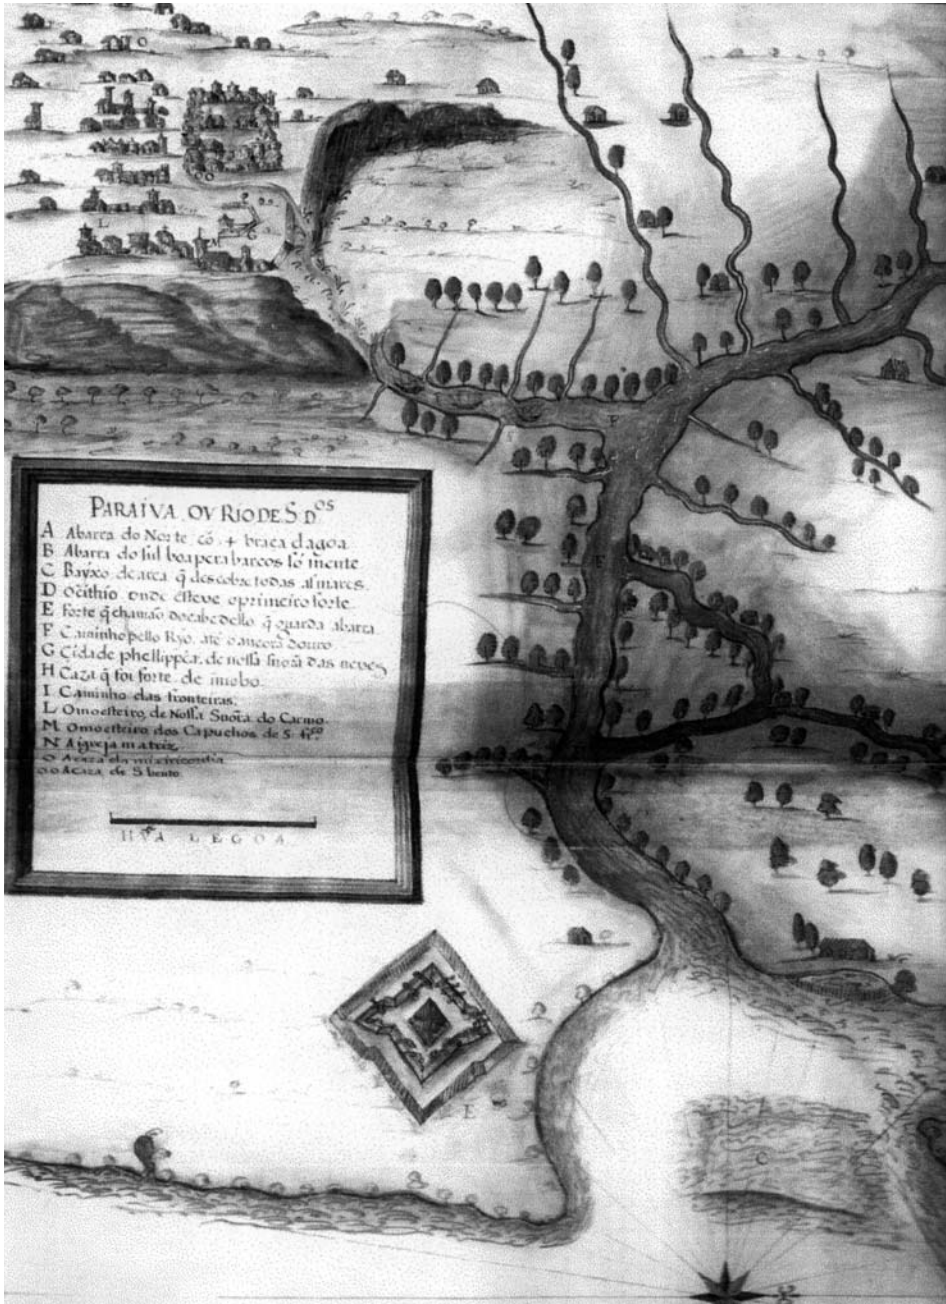 PARAÍVA OV RIO DE S. D.OS
A Abarra do Norte cõ 4 braça dagoa
B Abarra do sul boa pera barcos sómente
C Bayxo de area q̃ descobre todas as mares
D O cithio onde esteve o primeiro forte
E Forte q̃ chamão do cabedello q̃ guarda abarra
F Caminho pello Ryo até o ancoradouro
G Cidade phellippéa de nossa snora das neves
H Caza q̃ foi forte de
I Caminho das fronteiras
L O moesteiro de Nossa Snora do Carmo
M O moesteiro dos Capuchos de S. fr.co
N Aigreja matriz
O Acaza da misiricordia
OO Acaza de S bento
HVA LEGOA
O
L
M
G
F
E
E
C